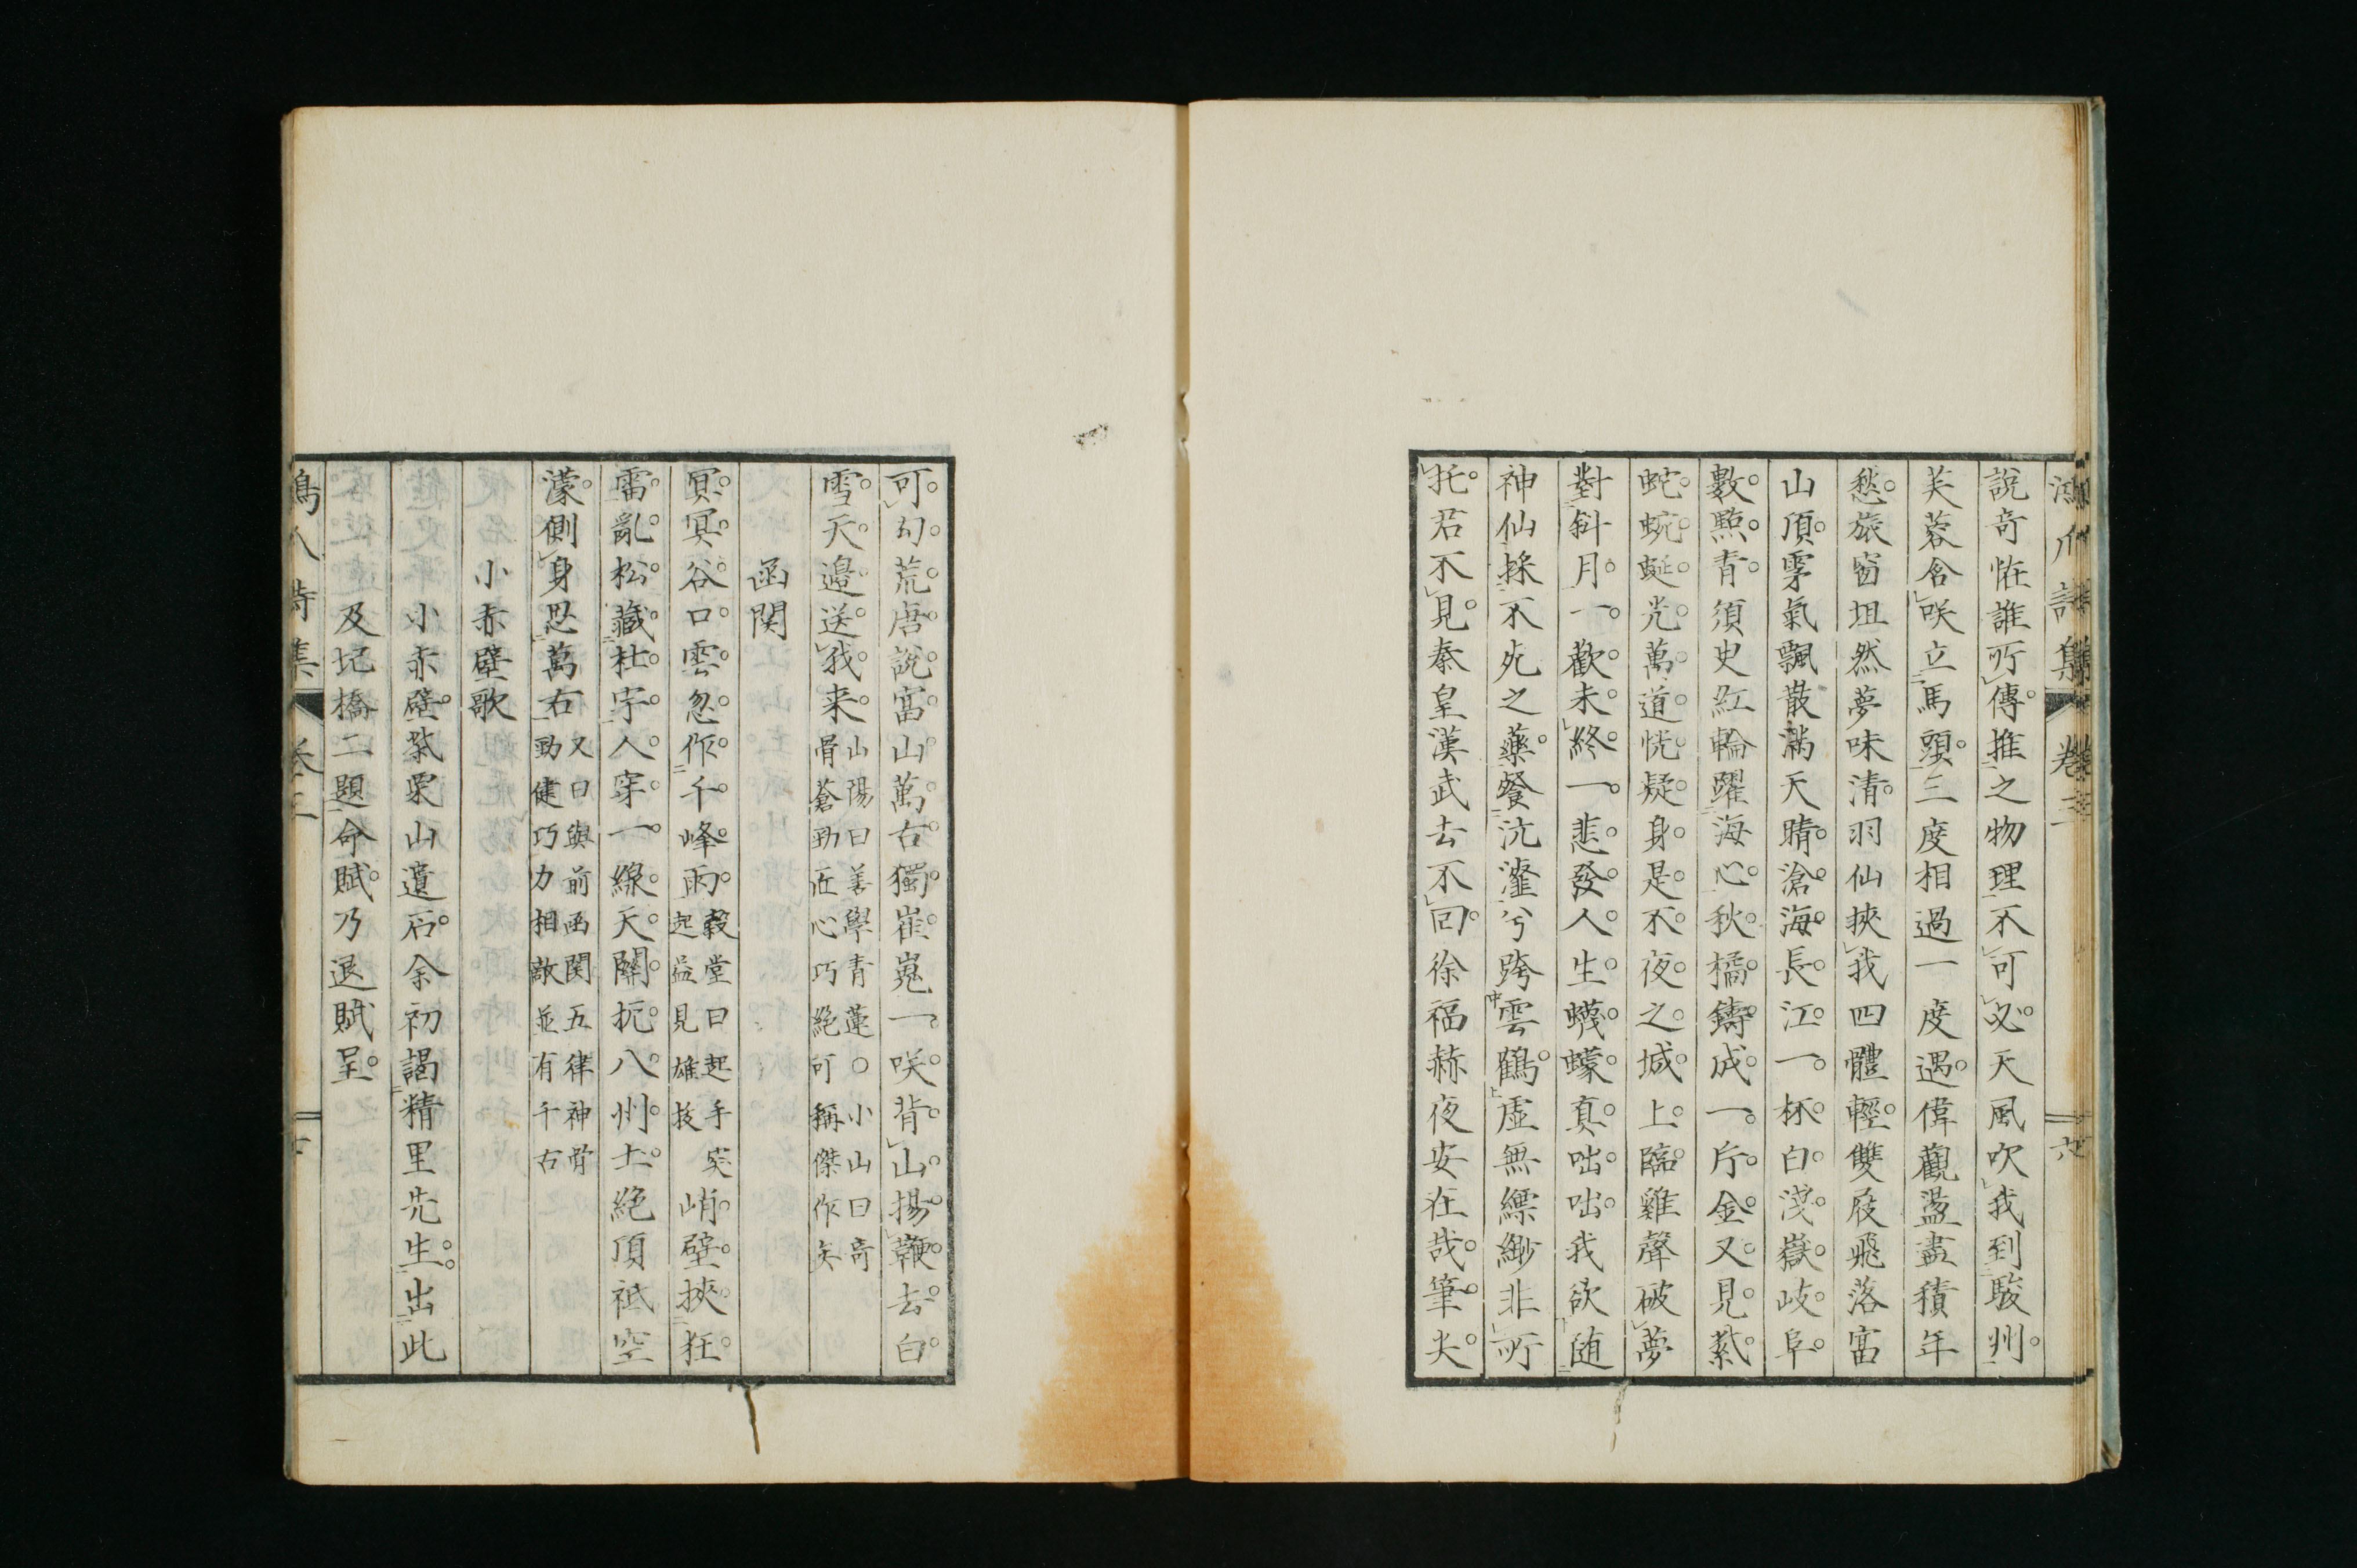 說奇怪誰所傳。推之物理不可必。天風吹我到駿州。
芙蓉含咲立馬頭。三度相過一度遇。偉觀盪盡積年
愁。旅窗坦然夢味清。羽仙挾我四體輕。雙屐飛落富
山頂。雰氣飄散滿天晴。滄海長江一杯白。淺嶽岐阜
數點青。須臾紅輪躍海心。秋橘鑄成一片金。又見紫
蛇蜿蜒光萬道。恍疑身是不夜之城上臨。雞聲破夢
對斜月。一歡未終一悲發。人生蠛蠓真咄咄。我欲随
神仙採不死之藥。餐沆瀣兮跨雲鶴。虛無縹緲非所
托。君不見秦皇漢武去不回。徐福赫夜安在哉。筆尖
可勾荒唐說。富山萬古獨崔嵬。一咲背山揚鞭去。白
雪天邊送我来。
山陽曰善學青蓮○小山曰奇
骨蒼勁匠心巧絕可稱傑作矣
函関
冥冥谷口雲忽作千峰雨
縠堂曰起手突
起益見雄技
峭壁挾狂
雷。亂松藏杜宇。人穿一線天。關扼八州土。絕頂祗空
濛。側身思萬古
又曰與前函関五律神骨
勁健巧力相敵並有千古
小赤壁歌
小赤壁。柴栗山遺石。余初謁精里先生。出此
及圯橋二題命賦。乃退賦呈。